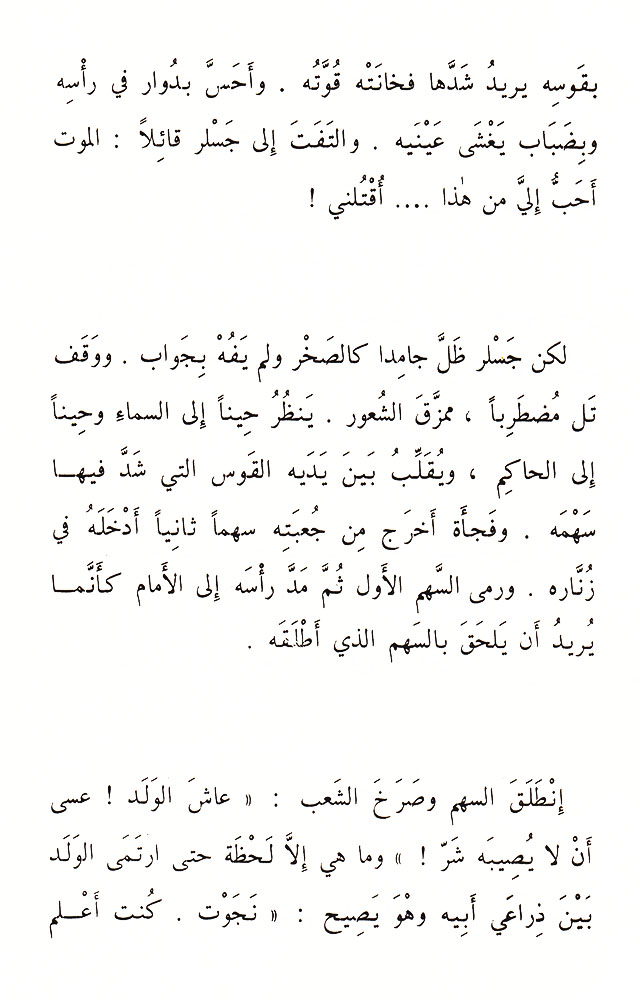 بقَوسِه يريدُ شَدَّها فخانَتْه قُوَّتُه . وأَحَسَّ بدُوار في رأْسِه
وبِضَبَاب يَغْشَى عَيْنَيه . والتَفَتَ إِلى جَسْلر قائِلاً : الموت
أَحَبُّ إِليَّ من هٰذا .... أُقْتُلني !
لكن جَسْلر ظَلَّ جامِدا كالصَخْر ولم يَفُهْ بِجَواب . ووَقَف
تَل مُضطَرِباً ، ممزَّقَ الشُعور . يَنظُرُ حِيناً إِلى السماءِ وحِيناً
إِلى الحاكِم ، ويُقَلِّبُ بَينَ يَدَيه القَوس التي شَدَّ فيهــا
سَهْمَه . وفَجأَة أَخرَج مِن جُعبَتِه سهماً ثانِياً أَدْخَلَهُ في
زُنَّاره . ورمى السَّهم الأَول ثُمَّ مَدَّ رأْسَه إِلى الأَمام كـأَنَّمــا
يُريدُ أَن يَلحَقَ بالسَهم الذي أَطْلَقَه .
إِنْطَلَقَ السهم وصَرَخَ الشَعب : « عاشَ الوَلَد ! عسى
أَنْ لا يُصِيبَه شَرّ ! » وما هي إِلاَّ لَحْظَة حتى ارتَمَى الوَلَد
بَيْنَ ذِراعَي أَبيه وهْوَ يَصِيح : « نَجَوْت . كُنت أَعْــلم